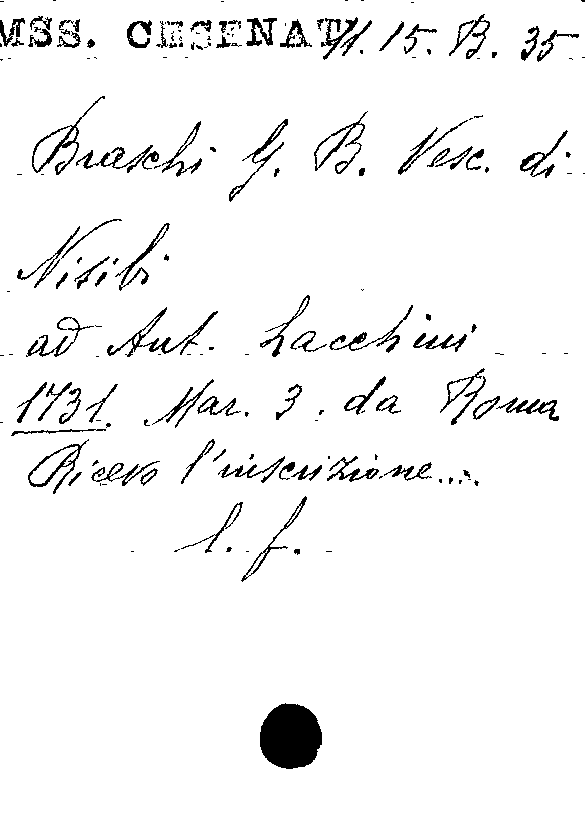 MSS. CESENAT. 11. 15. B. 35
Braschi G. B. Vesc. di
Nisibi
ad Ant. Lacchini
1731. Mar. 3. da Roma
Ricevo l'inscrizione....
l. f.